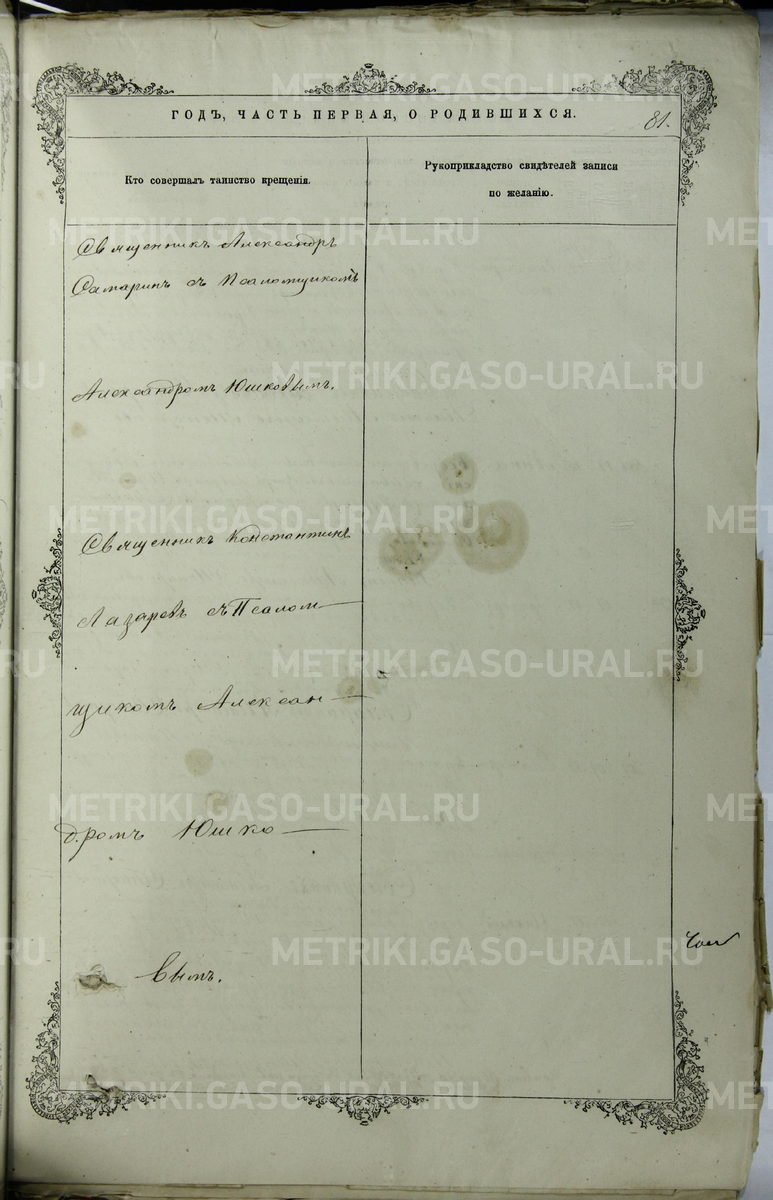 ГОДЪ, ЧАСТЬ ПЕРВАЯ, О РОДИВШИХСЯ.
81.
Кто совершалъ таинство крещенія.
Рукоприкладство свидѣтелей записи
по желанію.
Священникъ Александръ
Самаринъ съ Псаломщикомъ
Александромъ Юшковымъ.
Священникъ Константинъ
Лазаревъ съ Псалом—
щикомъ Алексан—
дромъ Юшко—
вымъ.
METRIKI.GASO-URAL.RU